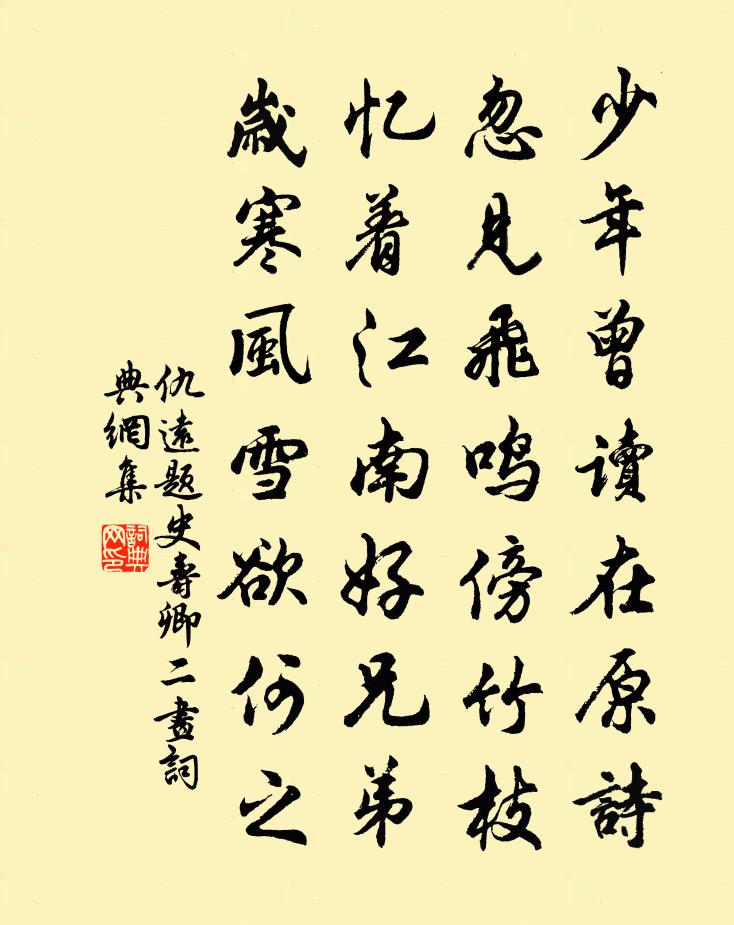 少年曾讀在原詩
忽見飛鸣傍竹枝
忆着江南好兄弟
歲寒風雪欲何之
仇遠題史壽卿二畫詞
典網集
詞典
网印